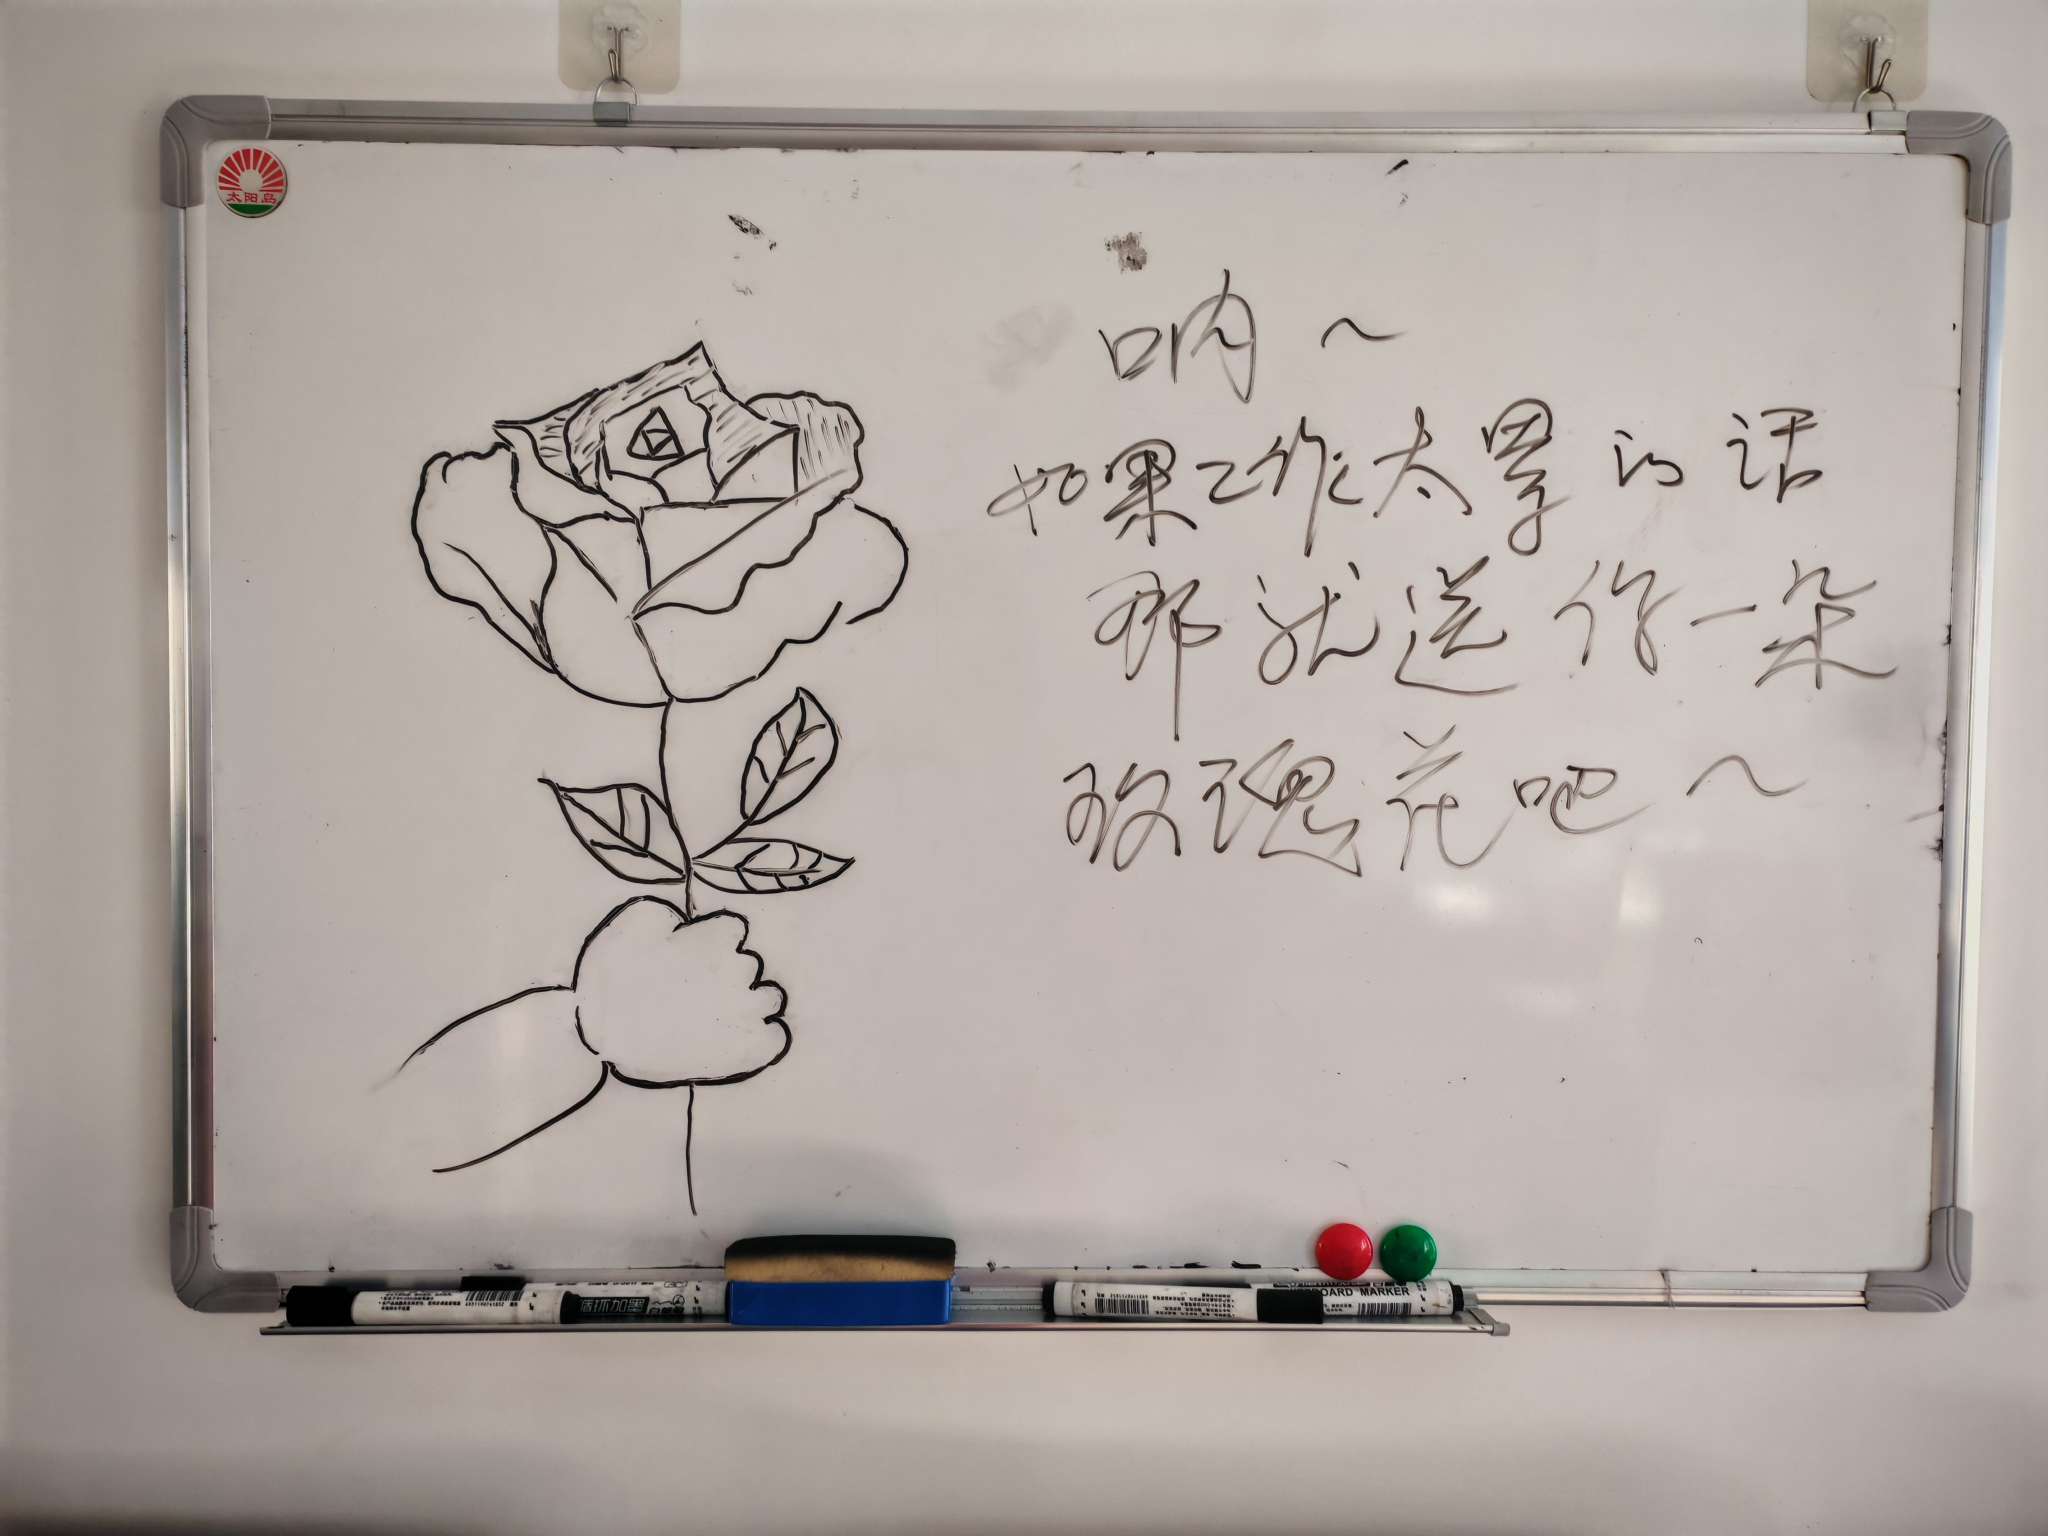 太阳岛
呐~
如果工作太累的话
那就送你一朵
玫瑰花吧~
循环加墨
BOARD MARKER